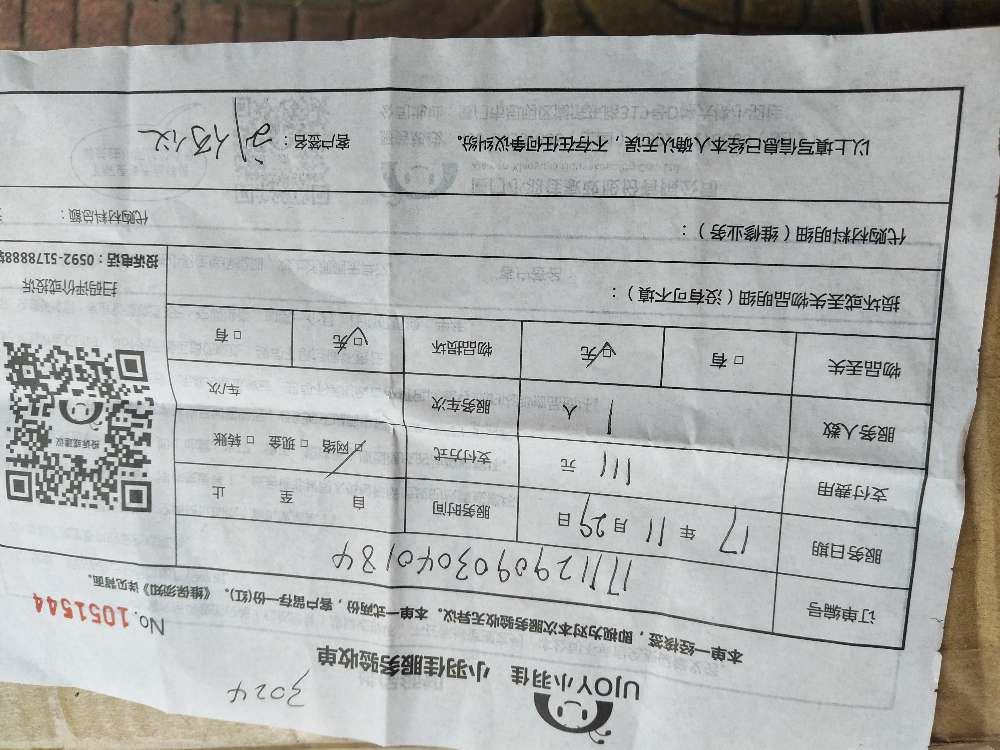 3024
UJOY小羽佳 小羽佳服务验收单
No. 1051544
本单一经接签，即视为对本次服务验收无异议。本单一式两份，客户留存一份(红)。《维保须知》详见背面。
订单编号 1711290903040184
服务日期 17 年 11 月 29 日 服务时间 自 至 止
支付费用 111 元 支付方式 □ 网络 □ 现金 □ 转账
服务人数 1 人 服务车次 车/次
物品丢失 □ 有 □ 无 物品损坏 □ 无 □ 有
投诉或建议
扫码评价或投诉
投诉电话：0592-5178888转
损坏或丢失物品明细（没有可不填）：
代购材料明细（维修业务）： 代购材料总额：
以上填写信息已经本人确认无误，不存在任何争议纠纷。 客户签名：